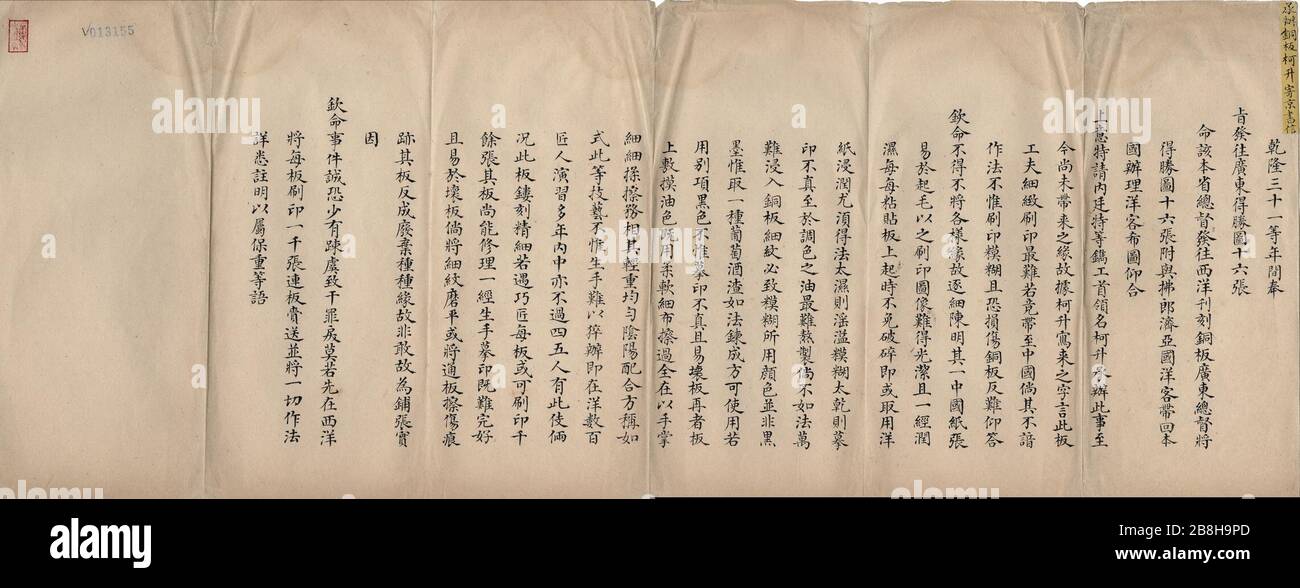 承辦銅板柯升寄京書信
乾隆三十一等年間奉
旨發往廣東得勝圖十六張
命該本省總督發往西洋刊刻銅板廣東總督將
得勝圖十六張附與拂郎濟亞國洋客帶回本
國辦理洋客布圖仰合
上意特請內廷特等鐫工首領名柯升承辦此事至
今尚未帶來之緣故據柯升寫來之字言此板
工夫細緻刷印最難若竟帶至中國倘其不諳
作法不惟刷印模糊且恐損傷銅板反難仰答
欽命不得不將各樣緣故逐細陳明其一中國紙張
易於起毛以之刷印圖像難得光潔且一經潤
濕每每粘貼板上起時不免破碎即或取用洋
紙浸潤尤須得法太濕則淫滥糢糊太乾則摹
印不真至於調色之油最難熬製倘不如法萬
難浸入銅板細紋必致糢糊所用顏色並非黑
墨惟取一種葡萄酒渣如法鍊成方可使用若
用別項黑色不惟摹印不真且易壞板再者板
上敷摸油色既用柔軟細布擦過全在以手掌
細細揉擦務相其輕重均勻陰陽配合方稱如
式此等技藝不惟生手難以猝辦即在洋數百
匠人演習多年內中亦不過四五人有此伎倆
況此板鏤刻精細若遇巧匠每板或可刷印千
餘張其板尚能修理一經生手摹印既難完好
且易於壞板倘將細紋磨平或將通板擦傷痕
跡其板反成廢棄種種緣故非敢故為鋪張實
因
欽命事件誠恐少有疎虞致干罪戾莫若先在西洋
將每板刷印一千張連板賫送並將一切作法
詳悉註明以屬保重等語
V013155
alamy
Image ID: 2B8H9PD
www.alamy.com